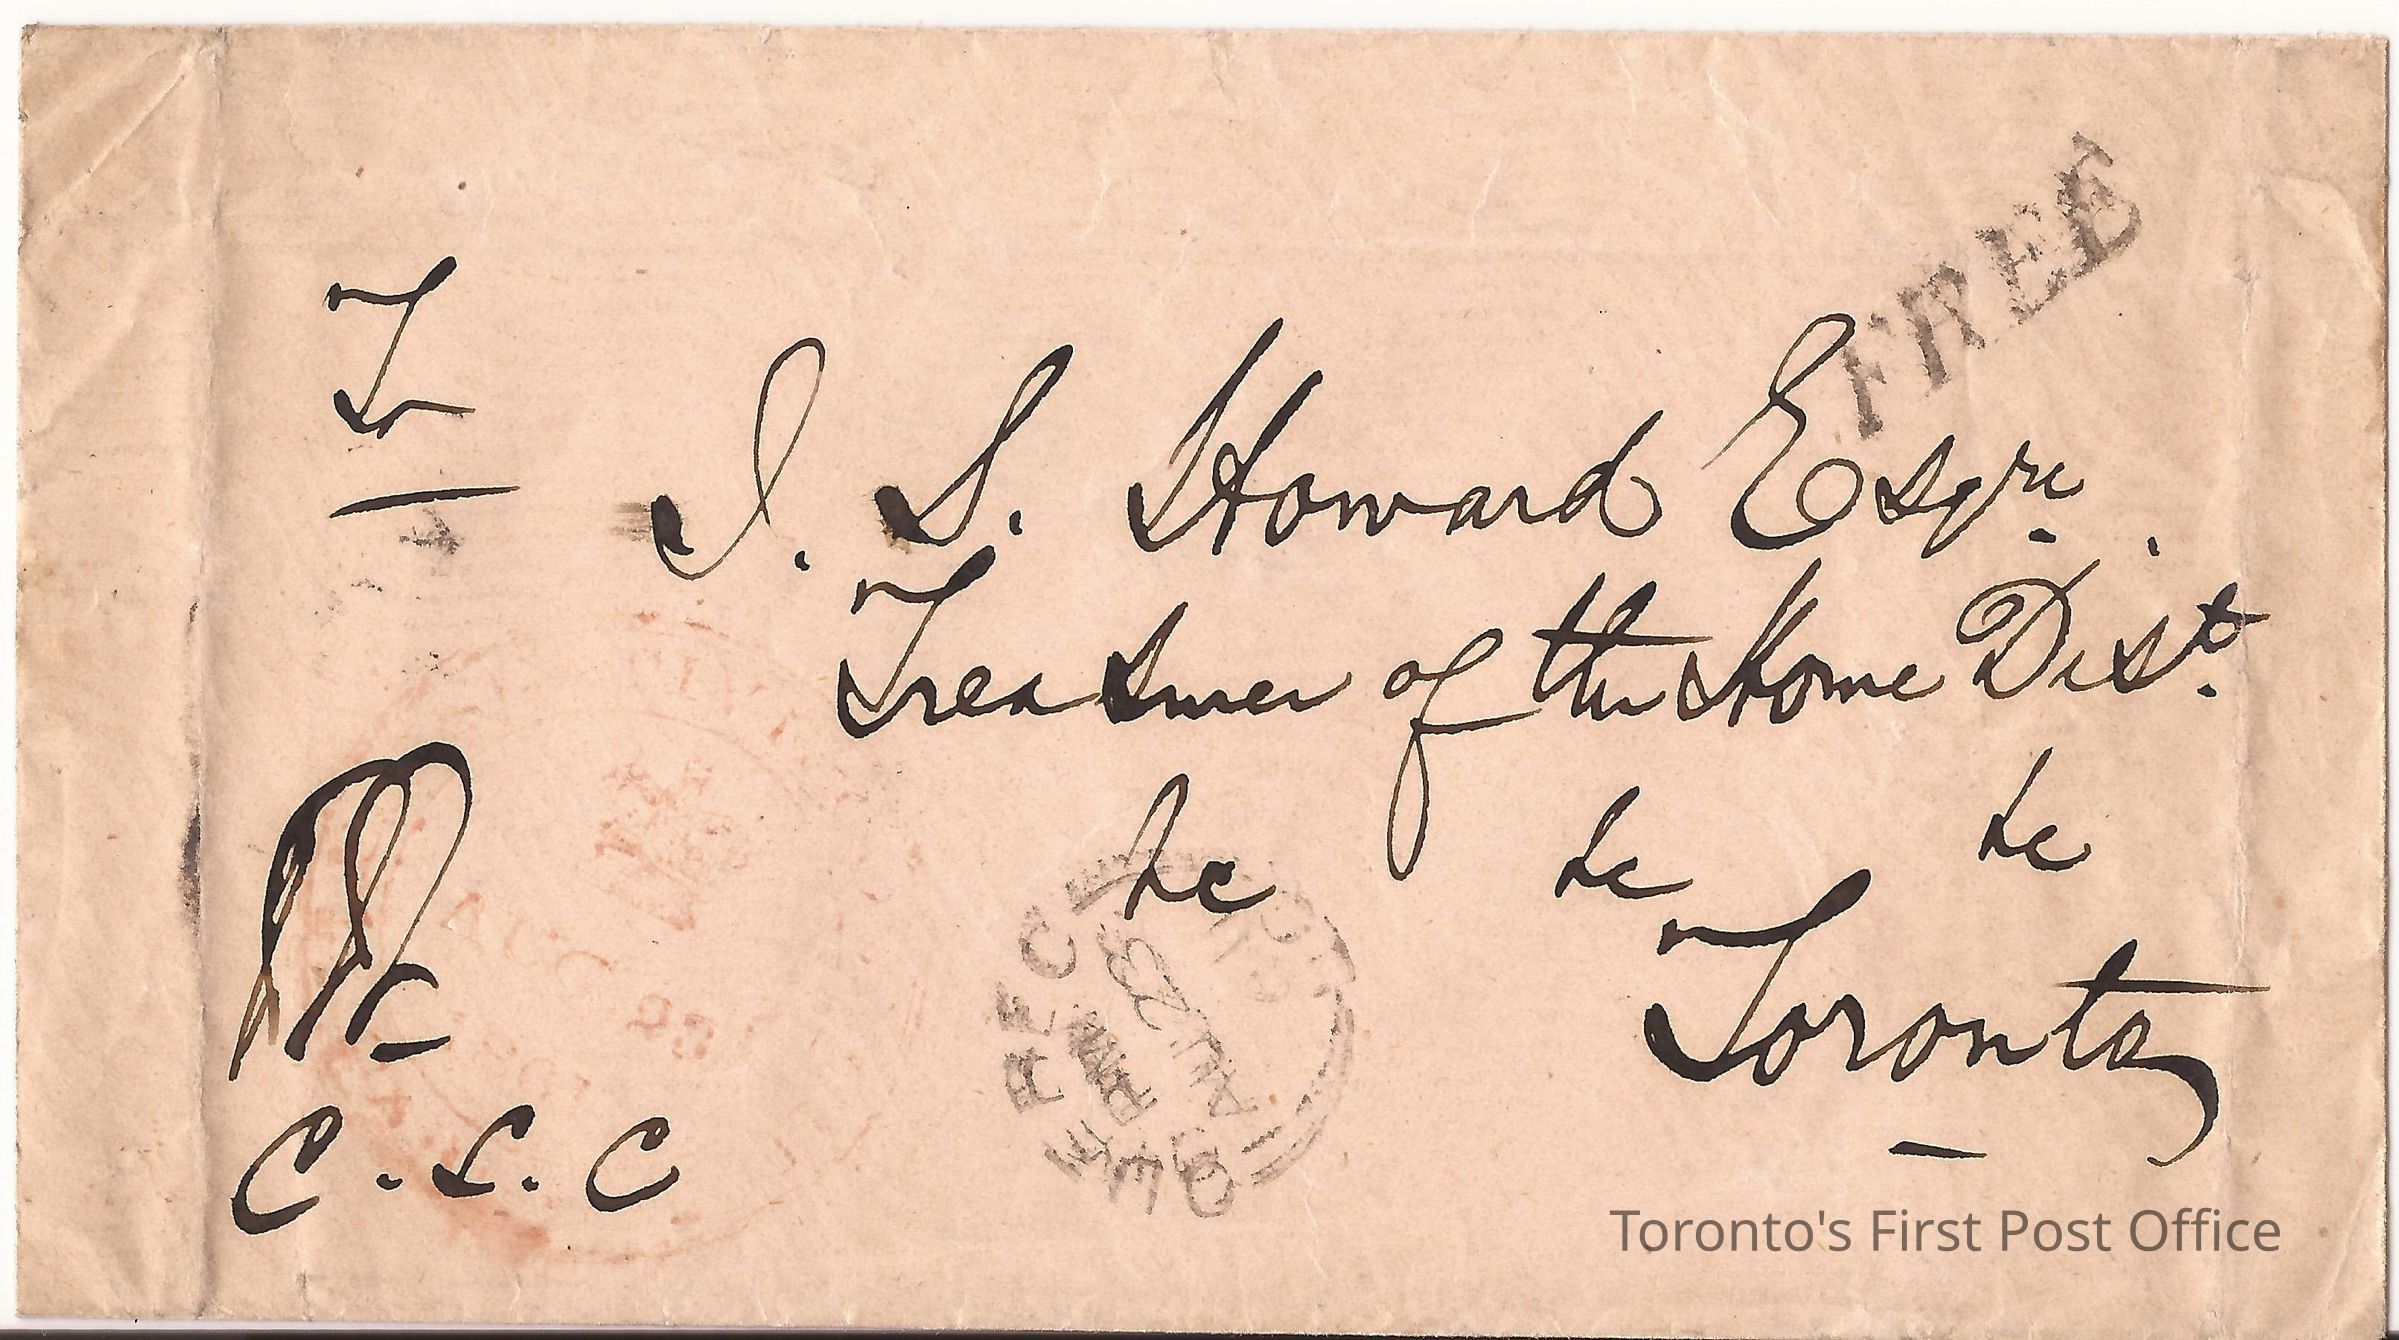 To
FREE
J. S. Howard Esqre.
Treasurer of the Home Dist.
&c &c &c
Toronto
C. S. C
REC
Toronto's First Post Office